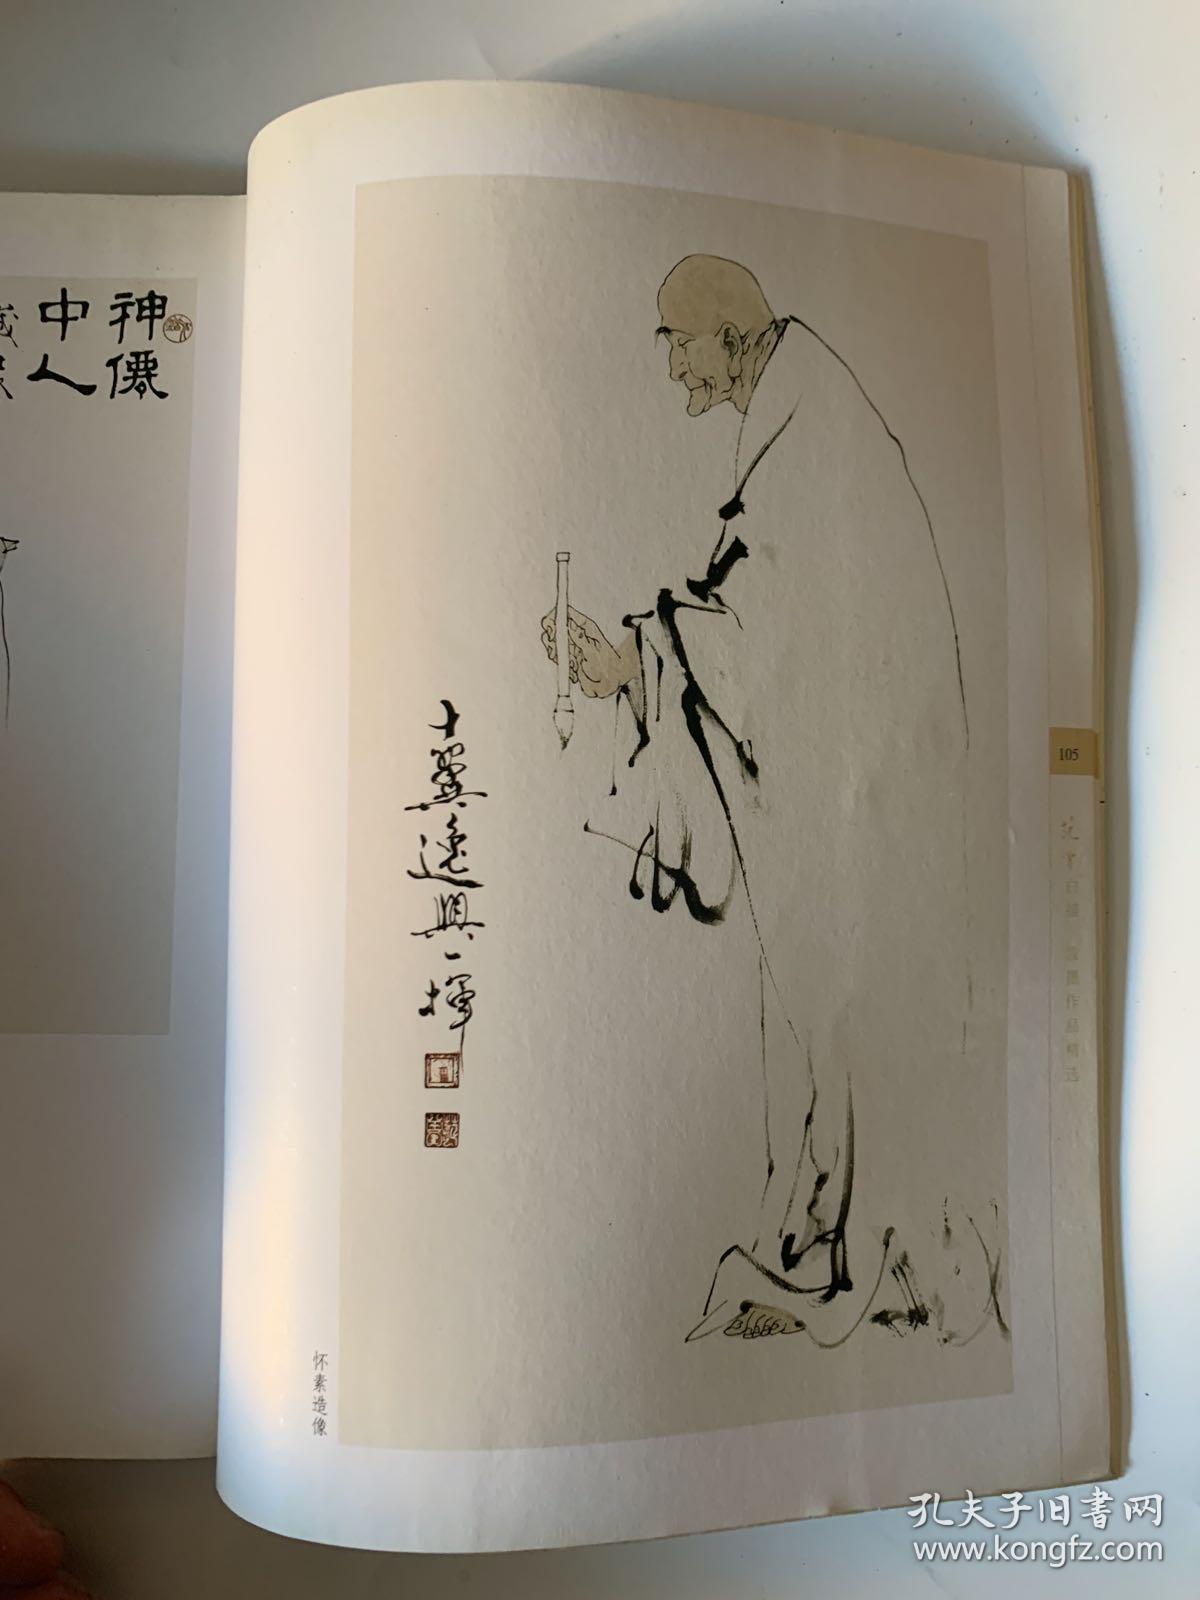 神僊
中人
十翼逸興一揮
怀素造像
105
范曾白描 泼墨作品精选
孔夫子旧书网
www.kongfz.com